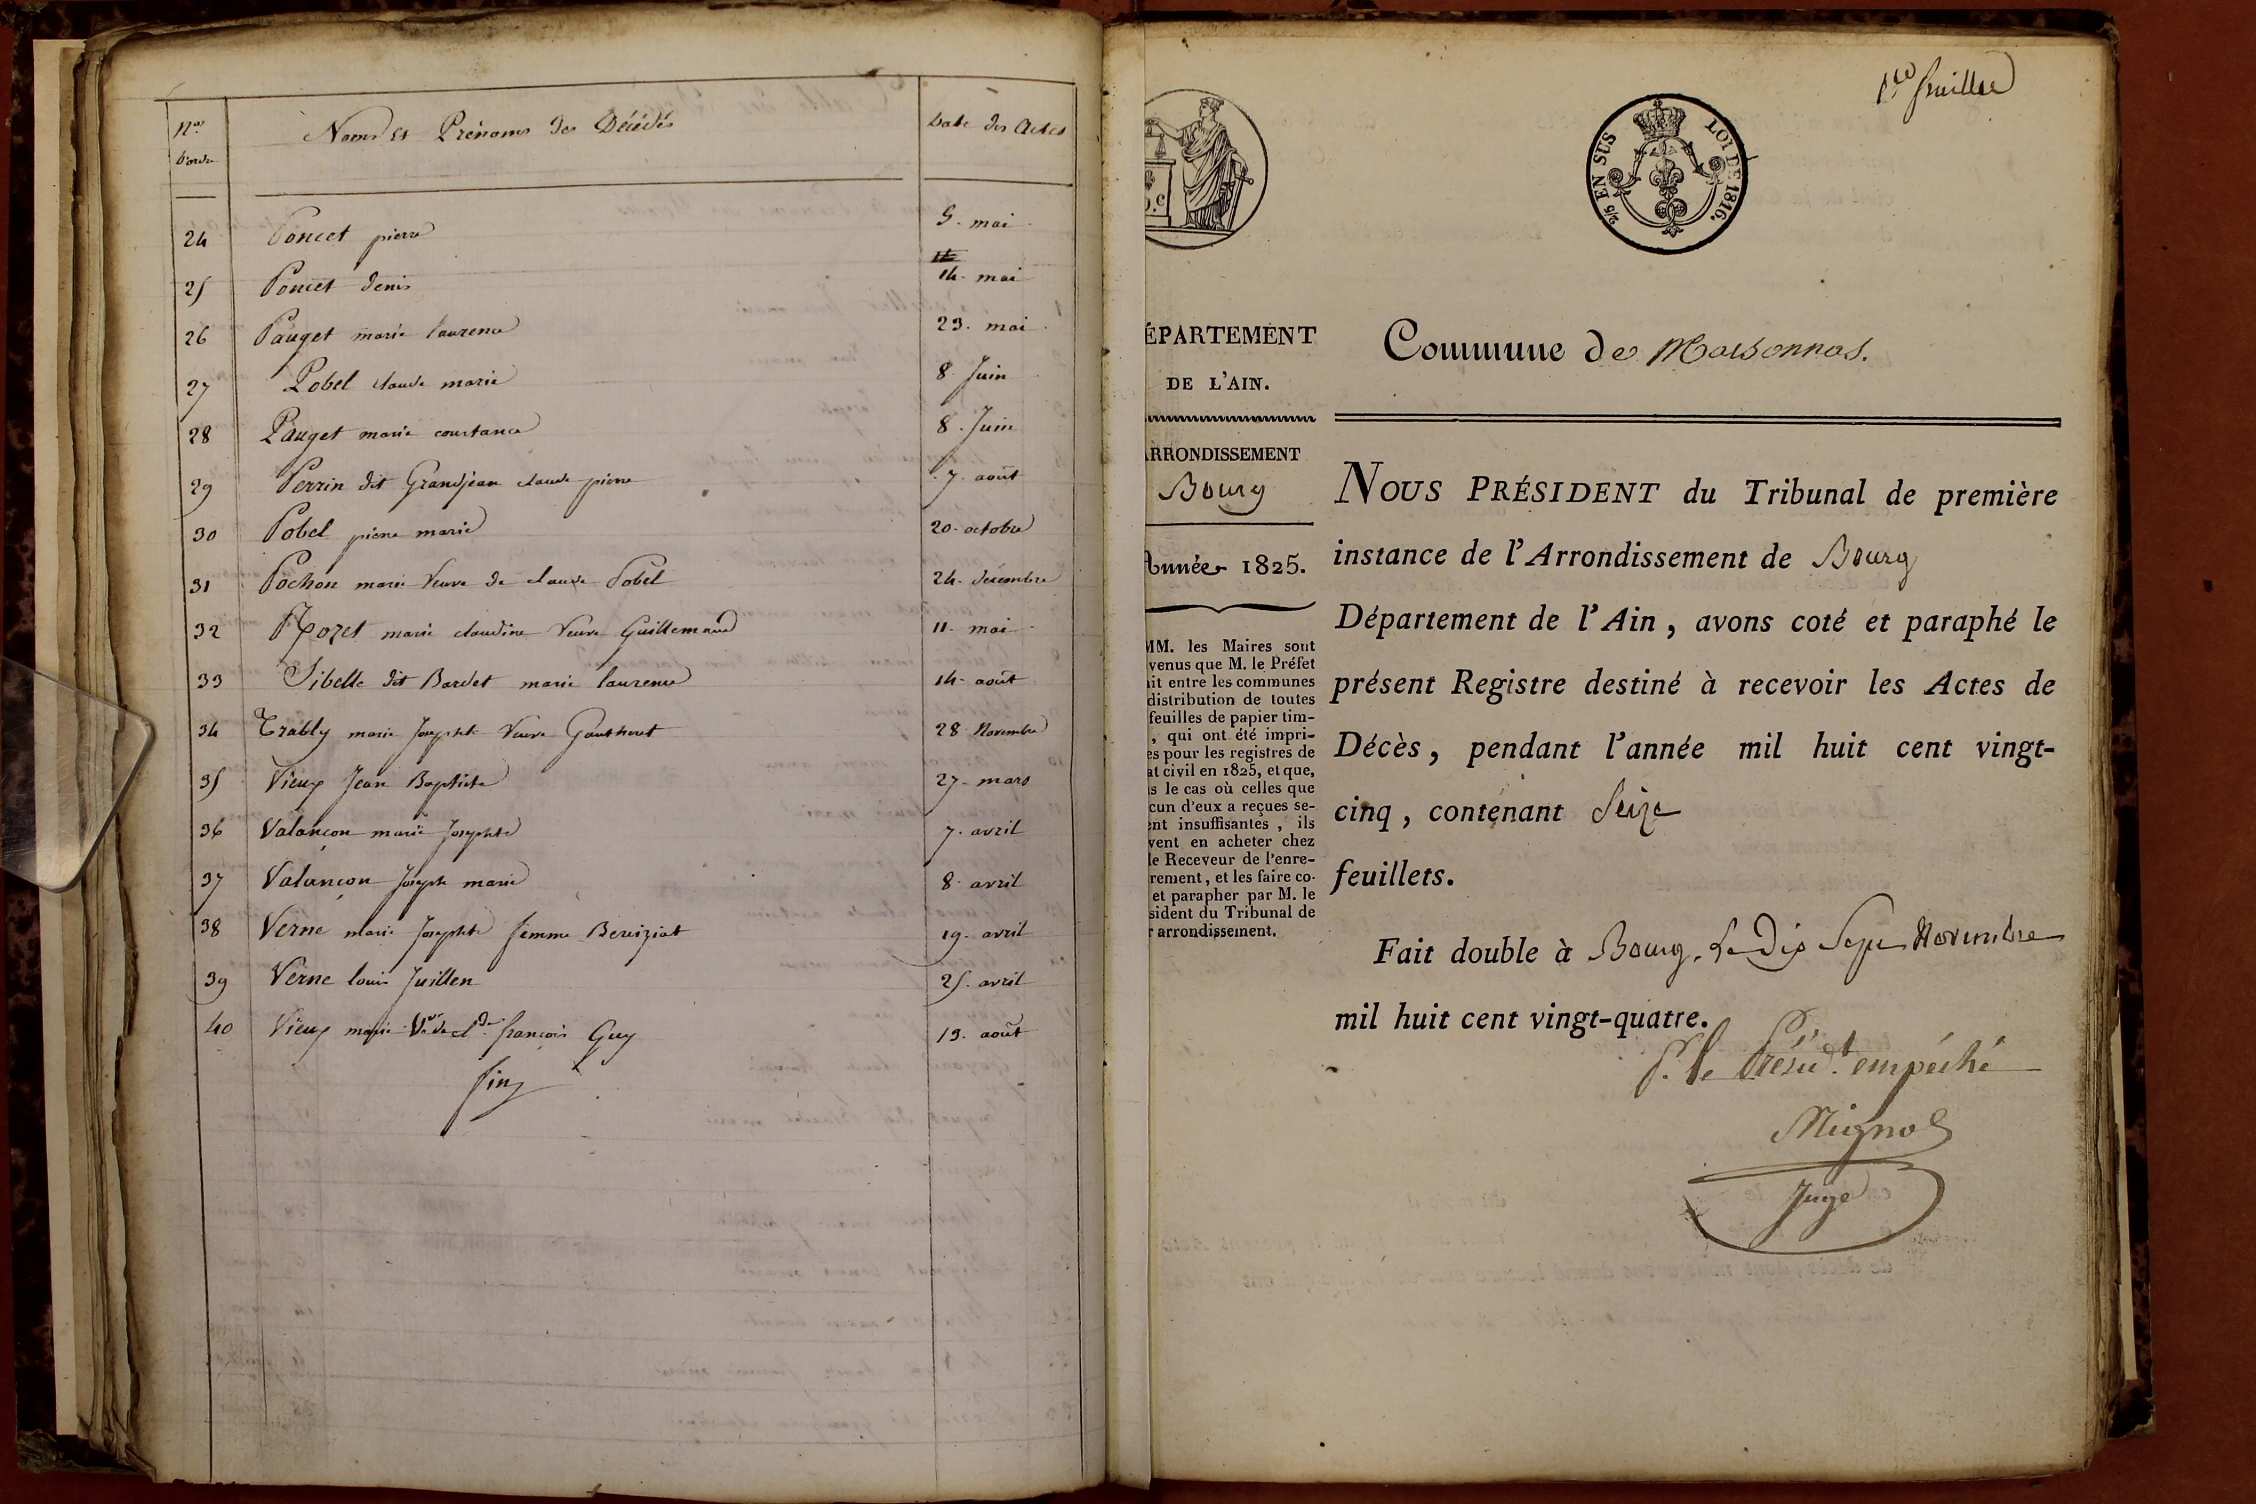 Nos
d'ordre
Noms et Prénoms des Décédés
Date des Actes
24 Poncet pierre 5. mai
25 Poncet denis 14. mai
26 Pauget marie laurence 23. mai
27 Pobel claude marie 8. Juin
28 Pauget marie constance 8. Juin
29 Perrin dit Grandjean claude pierre 7. août
30 Pobel pierre marie 20. octobre
31 Pochon marie Veuve de claude Pobel 24. décembre
32 Rozet marie claudine Veuve Guillemaud 11. mai
33 Sibelle dit Bardet marie laurence 14. août
34 Trably marie Josephte Veuve Gauthert 28 Novembre
35 Vieux Jean Baptiste 27. mars
36 Valançon marie Josephte 7. avril
37 Valançon Joseph marie 8. avril
38 Verne marie Josephte femme Bereiziat 19. avril
39 Verne louis Juillen 25. avril
40 Vieux marie Vve de Cde françois Guy 13. août
fin
1re feuille
2/5 EN SUS
LOI DE 1816.
ÉPARTEMENT
DE L'AIN.
RRONDISSEMENT
Bourg
Année 1825.
MM. les Maires sont
venus que M. le Préfet
ait entre les communes
distribution de toutes
feuilles de papier tim-
, qui ont été impri-
es pour les registres de
at civil en 1825, et que,
s le cas où celles que
cun d'eux a reçues se-
ent insuffisantes, ils
vent en acheter chez
le Receveur de l'enre-
rement, et les faire co-
et parapher par M. le
sident du Tribunal de
r arrondissement.
Commune de Marsonnas.
NOUS PRÉSIDENT du Tribunal de première
instance de l'Arrondissement de Bourg
Département de l'Ain, avons coté et paraphé le
présent Registre destiné à recevoir les Actes de
Décès, pendant l'année mil huit cent vingt-
cinq, contenant Seize
feuillets.
Fait double à Bourg, le dix Sept Novembre
mil huit cent vingt-quatre.
P. le Présidt. empéché
Mignot
Juge